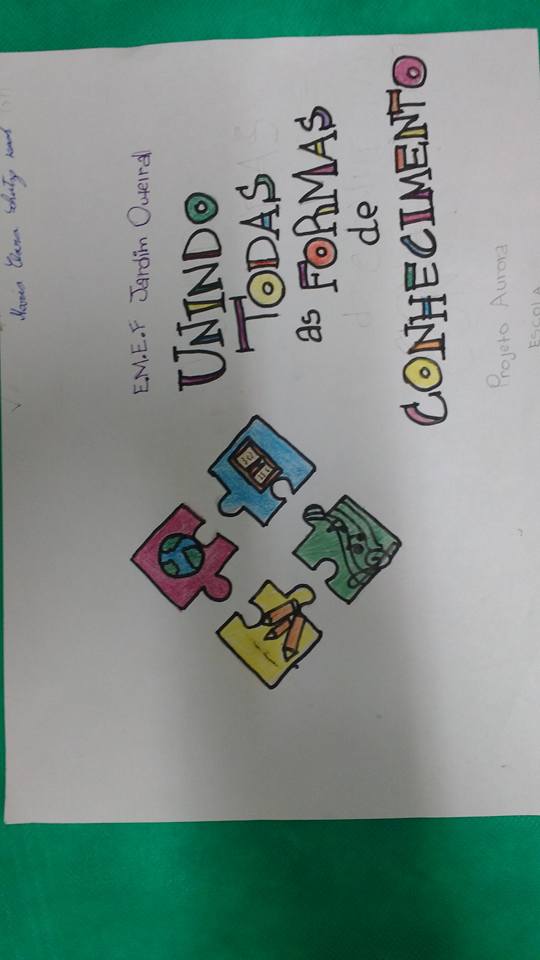 Maria Clara Schutz
E.M.E.F Jardim Outeiral
UNINDO
TODAS
as FORMAS
de
CONHECIMENTO
Projeto Aurora
ESCOLA